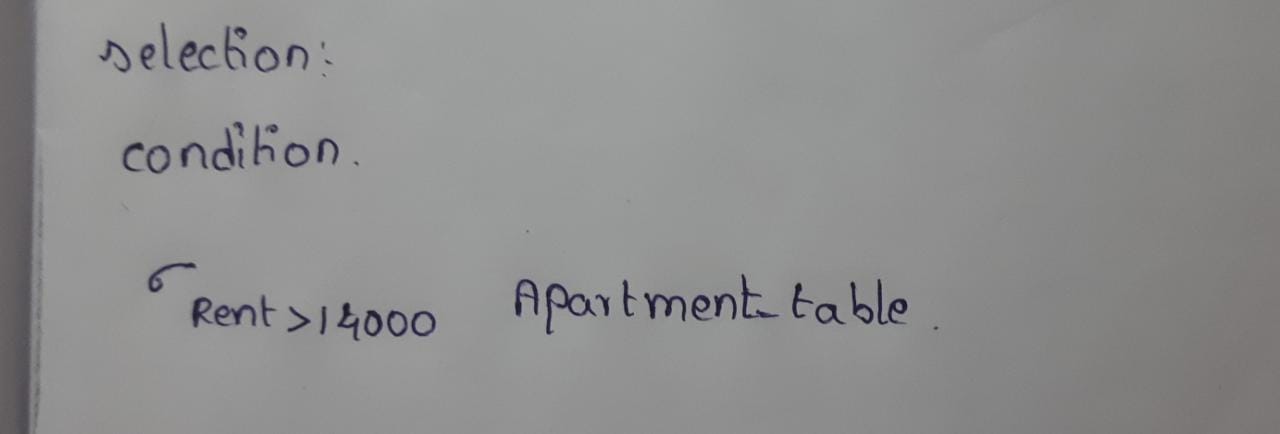 selection:
condition.
σ Rent>14000 Apartment_table.